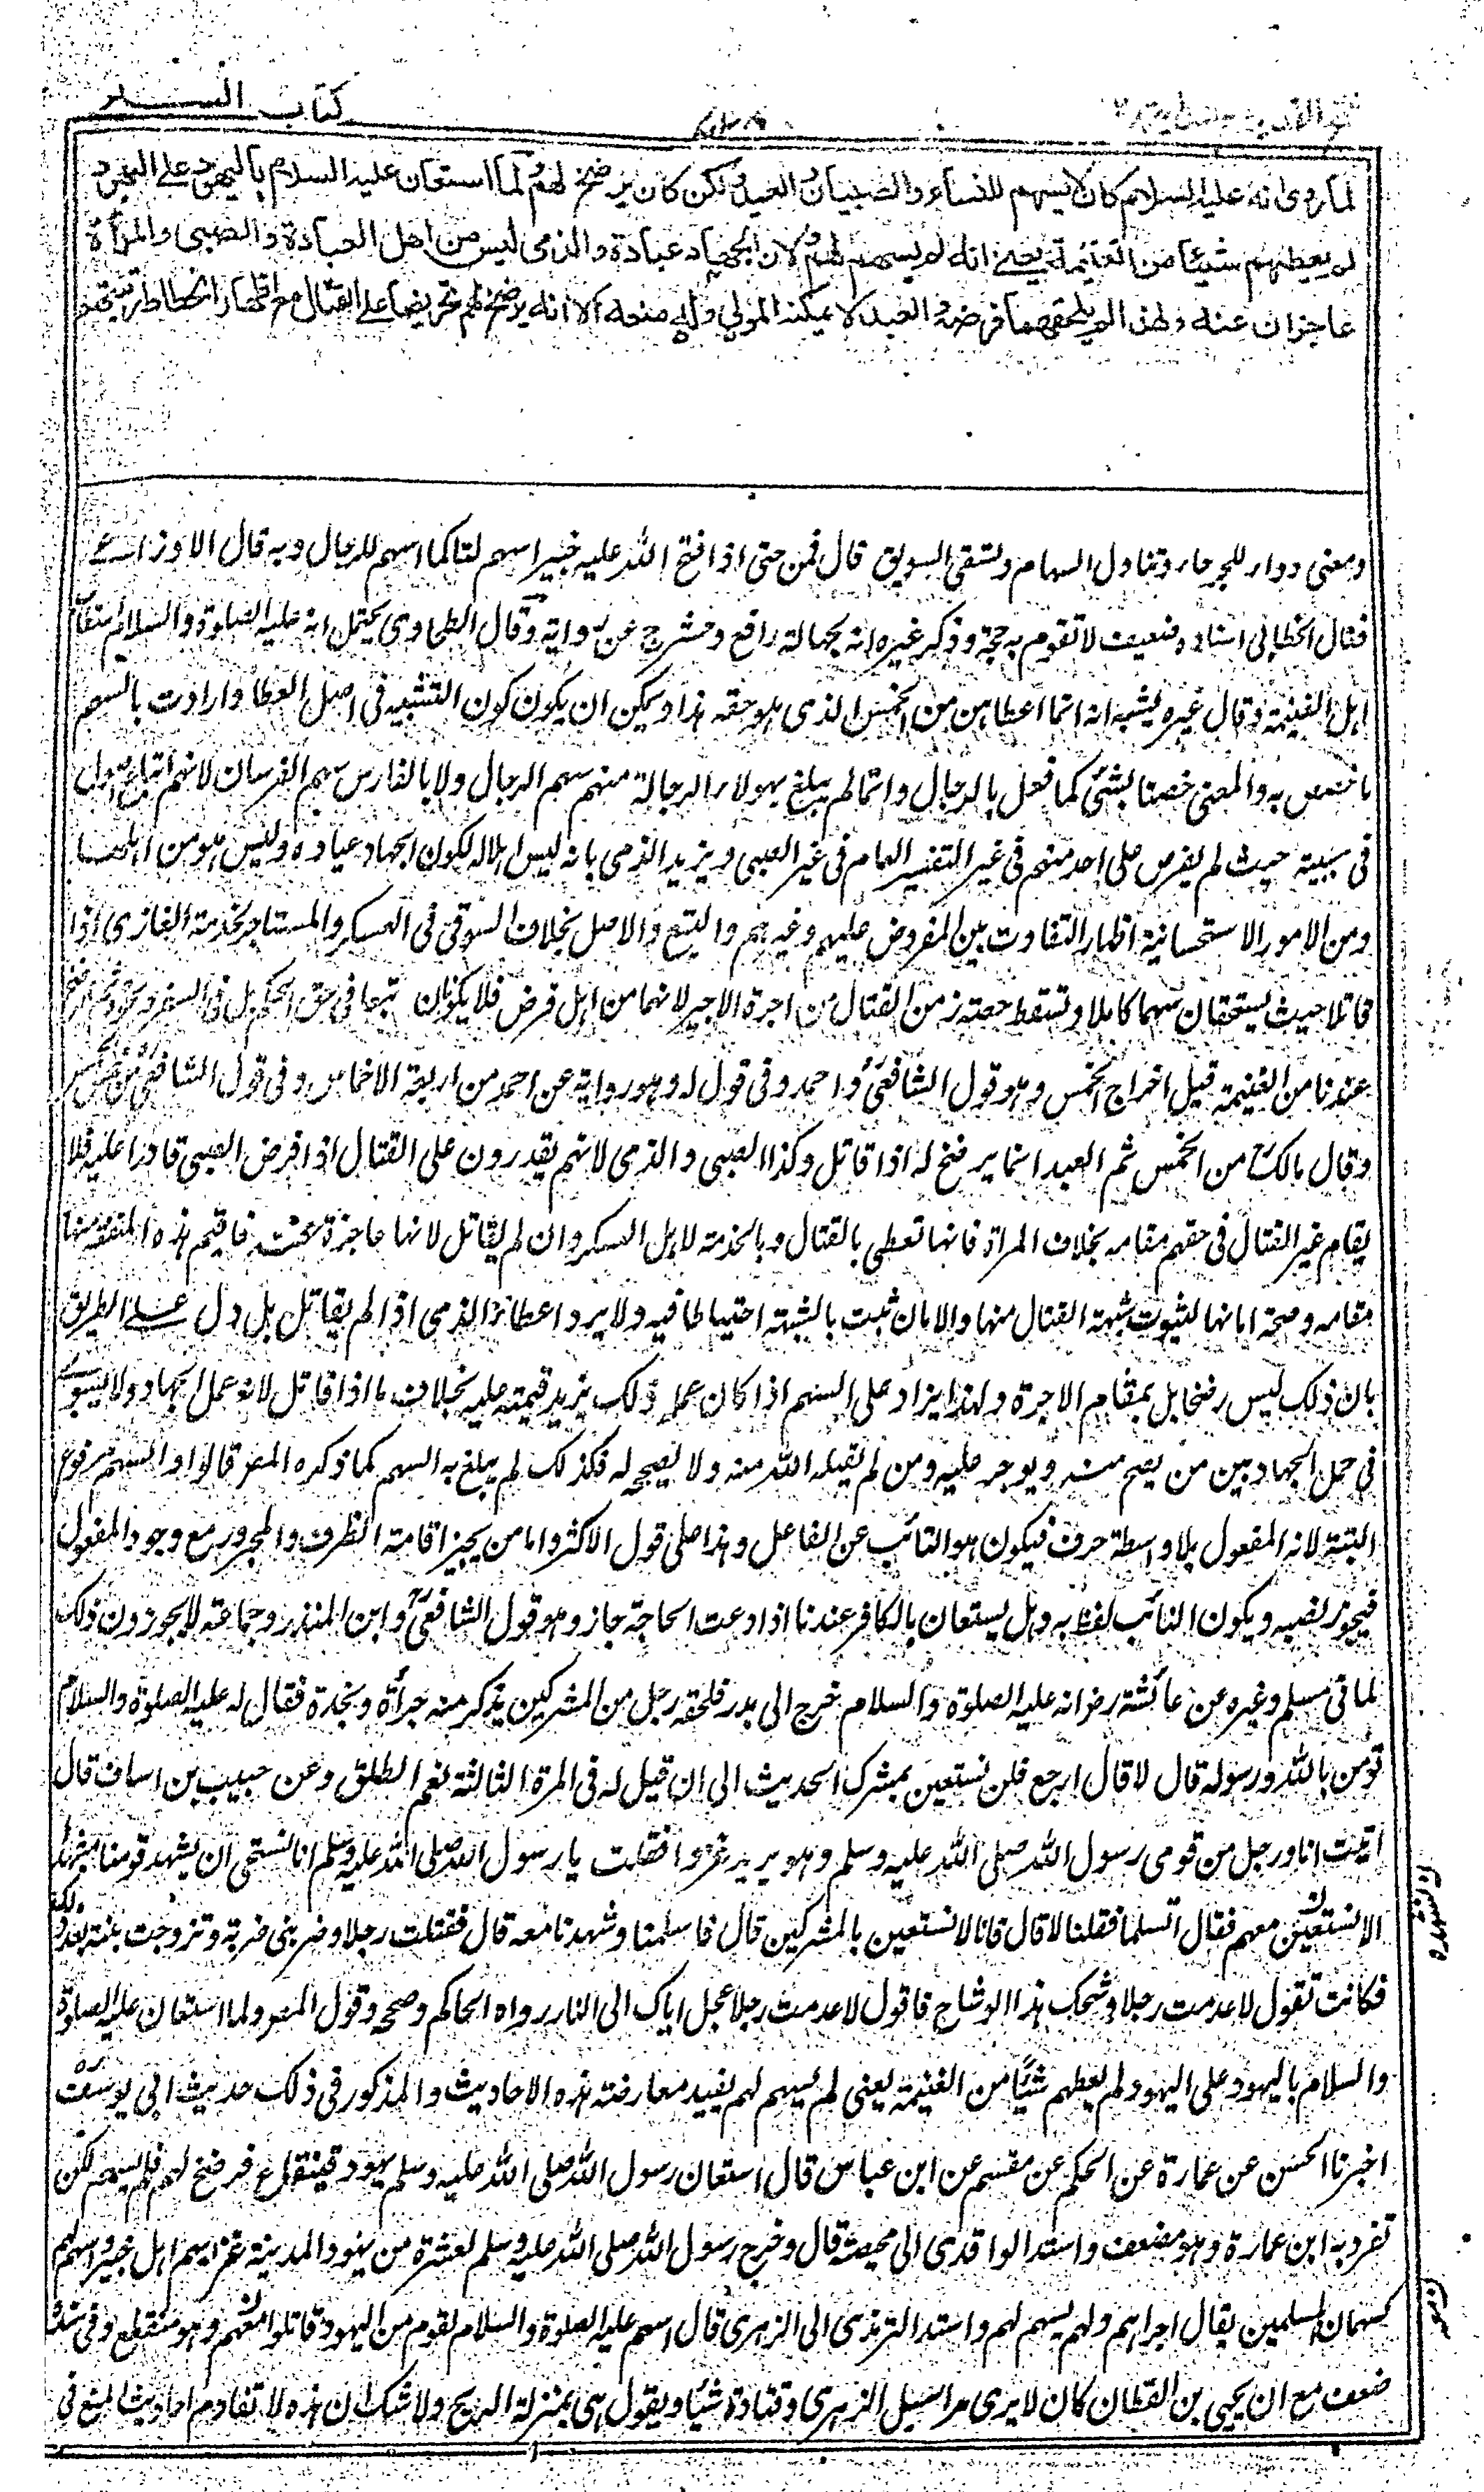 كتاب السير
لما روى انه عليه السلام كان لا يسهم للنساء والصبيان والعبيد ولكن كان يرضخ لهم ولما استعان عليه السلام باليهود على اليهود
لم يعطهم شيئا من الغنيمة يعني انه لم يسهم لهم ولان الجهاد عبادة والذمي ليس من اهل العبادة والصبي والمرأة
عاجزان عنه ولهذا لم يلحقهما فرضه والعبد لا يمكنه المولى وله منعه الا انه يرضخ لهم تحريضا على القتال مع اظهار انحطاط رتبتهم
ومعنى دواء للجرحاء وتناول السهام وتسقى السويق قال قمن حتى اذا فتح الله عليه خيبر اسهم لنا كما اسهم للرجال وبه قال الاوزاعي
فقال الخطابي اسناده ضعيف لا تقوم به حجة وذكر غيره انه بجهالة رافع وحشرج عن رواية وقال الطحاوي يحتمل انه عليه الصلوة والسلام
اهل الغنيمة وقال غيره يشبه انه انما اعطاهن من الخمس الذي هو حقه هذا ويمكن ان يكون كون التشبيه في اصل العطا وارادت بالسهم
ما خصص به والمعنى خصنا بشئ كما فعل بالرجال وانما لم يبلغ بهولاء الرجالة منهم سهم الرجال ولا بالفارس سهم الفرسان لانهم اتباع
في سببية حيث لم يفرض على احد منهم في غير النفير العام في غير الصبي ويزيد الذمي بانه ليس اهلا له لكون الجهاد عبادة وليس هو من اهلها
ومن الامور الاستحسانية اظهار التفاوت بين المفروض عليهم وغيرهم والتبع والاصل بخلاف السوقي في العسكر والمستاجر لخدمة الغازي اذا
قاتلا حيث يستحقان سهما كاملا وتسقط حصته زمن القتال من اجرة الاجير لانهما من اهل فرض فلا يكونان تبعا في حق الحكم بل في السفر
عندنا من الغنيمة قبل اخراج الخمس وهو قول الشافعي واحمد وفي قول له وهو رواية عن احمد من اربعة الاخماس وفي قول الشافعي من خمس الخمس
وقال مالك من الخمس ثم العبد انما يرضخ له اذا قاتل وكذا الصبي والذمي لانهم يقدرون على القتال اذا فرض الصبي قادرا عليه فلا
يقام غير القتال في حقهم مقامه بخلاف المراة فانها تعطى بالقتال وبالخدمة لاهل العسكر وان لم يقاتل لانها عاجزة عنه فاقيم هذه المنفعة منها
مقامه وصحة امانها لثبوت شبهة القتال منها والامان ثبت بالشبهة احتياطا فيه ولا يرد اعطاء الذمي اذا لم يقاتل بل دل على الطريق
بان ذلك ليس رضخا بل بمقام الاجرة ولهذا يزاد على السهم اذا كان عمله ذلك يزيد قيمته عليه بخلاف ما اذا قاتل لانه عمل الجهاد ولا يسوى
في عمل الجهاد بين من يصح منه ويوجر عليه ومن لم يقبله الله منه ولا يصححه له فكذلك لم يبلغ به السهم كما ذكره المصر قالوا والسهم مرفوع
البتة لانه المفعول بلا واسطة حرف فيكون هو النائب عن الفاعل وهذا على قول الاكثر واما من يجيز اقامة الظرف والمجرور مع وجود المفعول
فيجوز نصبه ويكون النائب لفظ به وهل يستعان بالكافر عندنا اذا دعت الحاجة جاز وهو قول الشافعي وابن المنذر وجماعة لا يجوزون ذلك
لما في مسلم وغيره عن عائشة رض انه عليه الصلوة والسلام خرج الى بدر فلحقه رجل من المشركين يذكر منه جرأة ونجدة فقال له عليه الصلوة والسلام
تؤمن بالله ورسوله قال لا قال ارجع فلن نستعين بمشرك الحديث الى ان قيل له في المرة الثالثة نعم انطلق وعن حبيب بن اساف قال
اتيت انا ورجل من قومي رسول الله صلى الله عليه وسلم وهو يريد غزوا فقلت يا رسول الله صلى الله عليه وسلم انا نستحي ان يشهد قومنا مشهدا
الا نستعين معهم فقال اتسلما فقلنا لا قال فانا لا نستعين بالمشركين قال فاسلمنا وشهدنا معه قال فقتلت رجلا وضربني ضربة وتزوجت بنته بعد ذلك
فكانت تقول لا عدمت رجلا وشحك هذا الوشاح فاقول لا عدمت رجلا عجل اباك الى النار رواه الحاكم وصححه وقول المصر ولما استعان عليه الصلوة
والسلام باليهود على اليهود لم يعطهم شيئا من الغنيمة يعني لم يسهم لهم يفيد معارضة هذه الاحاديث والمذكور في ذلك حديث ابي يوسف
اخبرنا الحسن عن عمارة عن الحكم عن مقسم عن ابن عباس قال استعان رسول الله صلى الله عليه وسلم بيهود قينقاع فرضخ لهم فلم يسهم لكن
تفرد به ابن عمارة وهو مضعف واسند الواقدي الى محيصة قال وخرج رسول الله صلى الله عليه وسلم بعشرة من يهود المدينة غزا بهم اهل خيبر واسهم لهم
كسهمان المسلمين يقال اجراهم ولم يسهم لهم واسند الترمذي الى الزهري قال اسهم عليه الصلوة والسلام لقوم من اليهود قاتلوا معهم وهو منقطع وفي سنده
ضعف مع ان يحيى بن القطان كان لا يرى مراسيل الزهري وقتادة شيئا ويقول هي بمنزلة الريح ولا شك ان هذه لا تقاوم احاديث المنع في